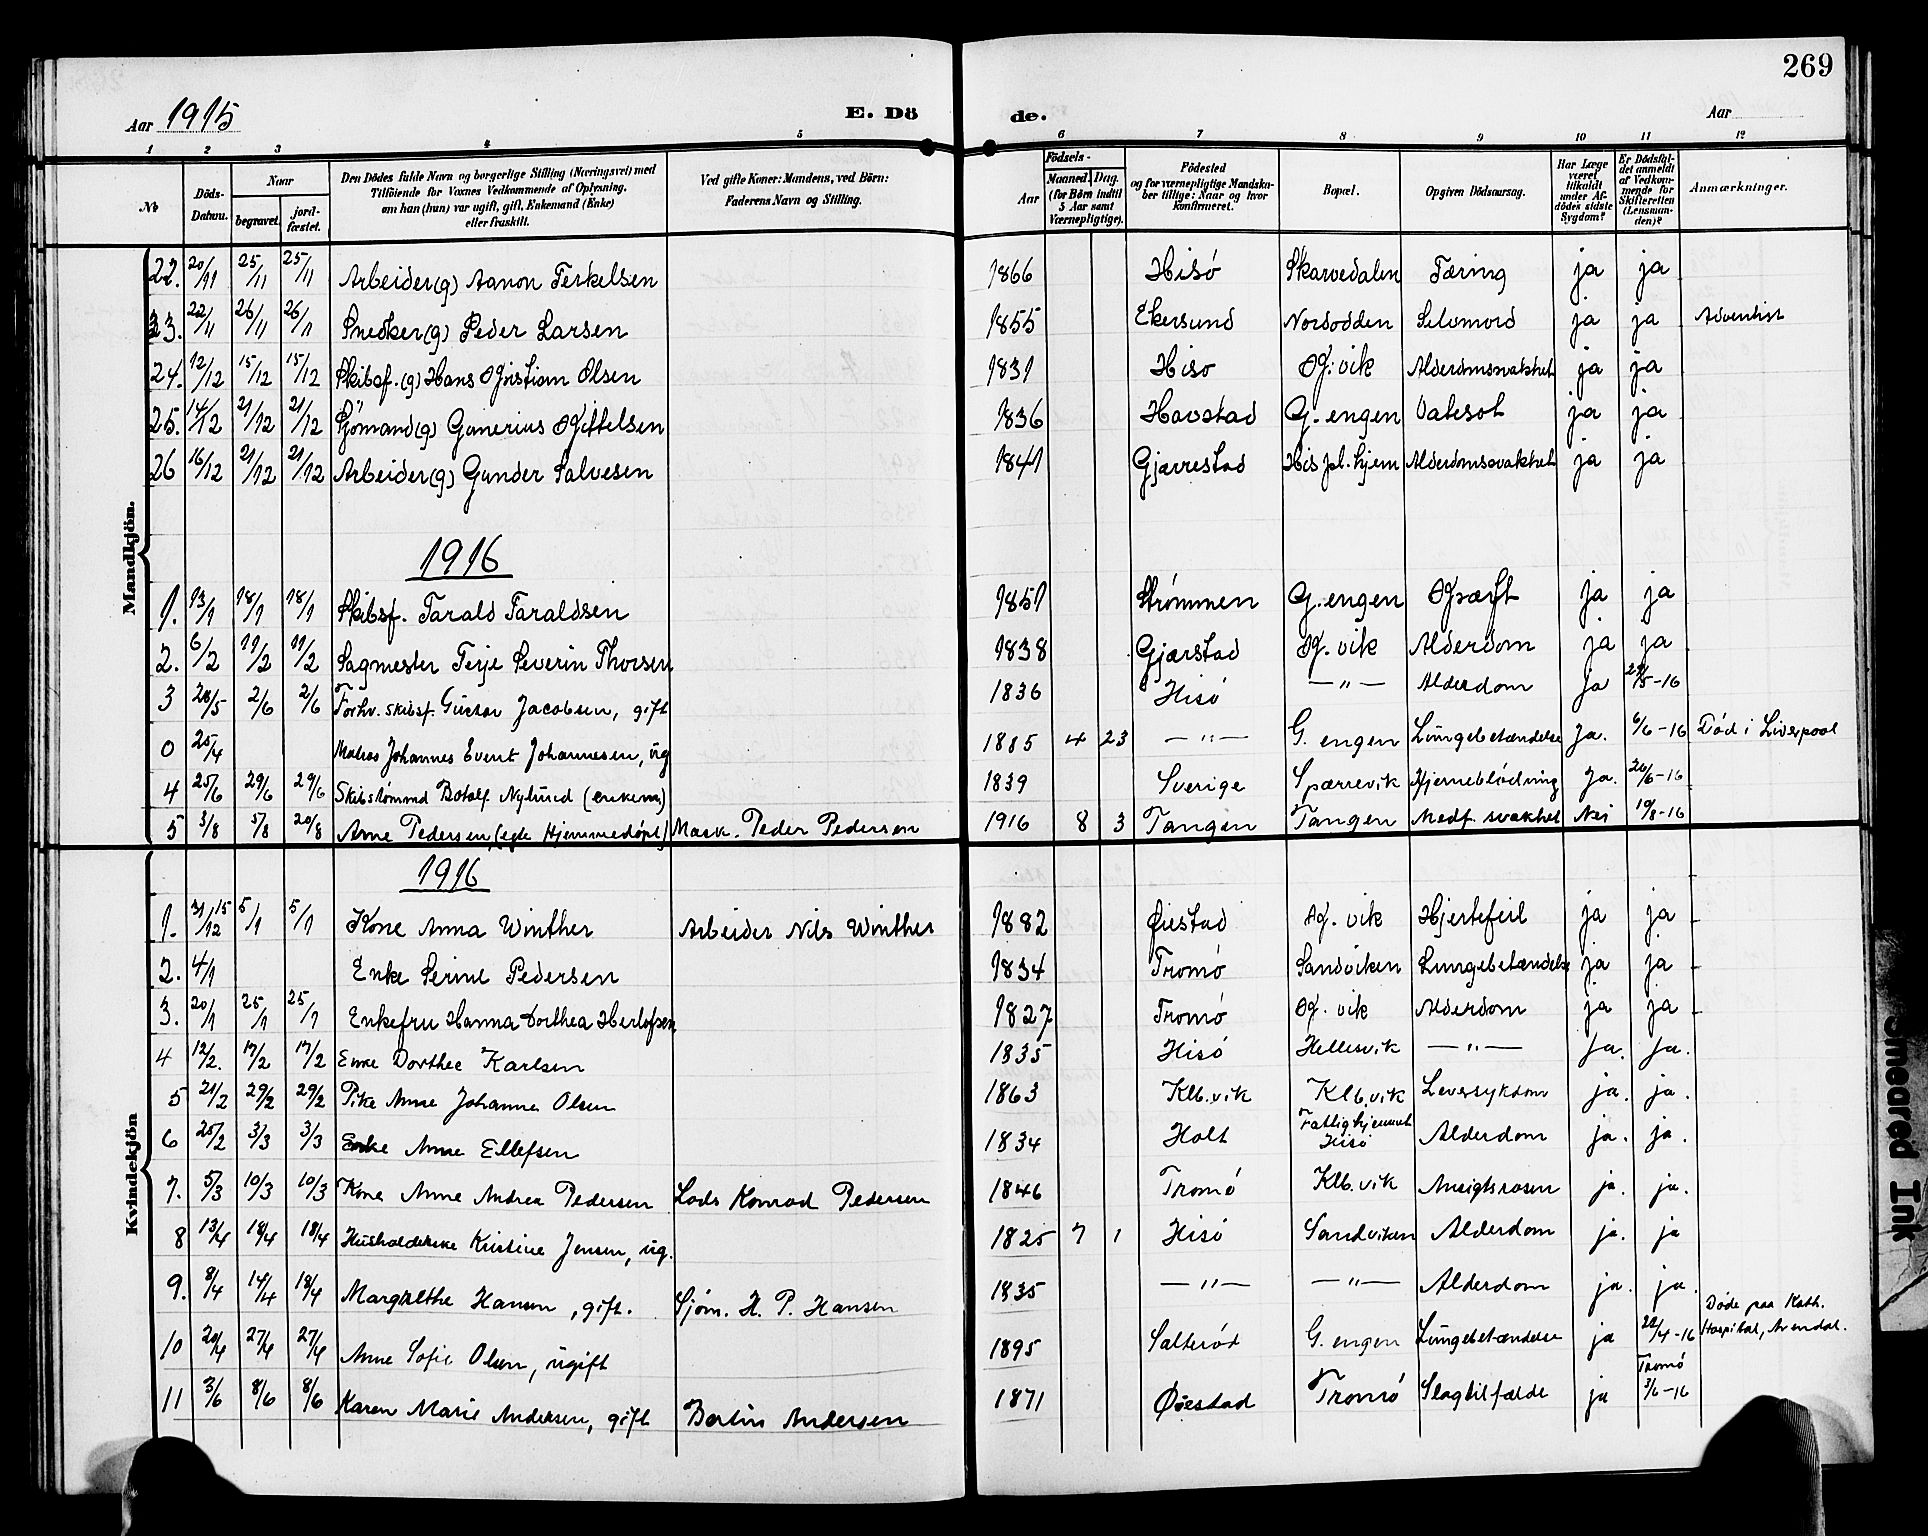 269
Aar 1915 E. Dö de. Aar
1 2 3 4 5 6 7 8 9 10 11 12
No
Döds-Datum.
Naar begravet. jordfæstet.
Den Dödes fulde Navn og borgerlige Stilling (Næringsvei) med Tilföiende for Voxnes Vedkommende af Oplysning, om han (hun) var ugift, gift, Enkemand (Enke) eller fraskilt.
Ved gifte Koner: Mandens, ved Börn: Faderens Navn og Stilling.
Födsels- Aar Maaned. Dag. (for Börn indtil 5 Aar samt Værnepligtige).
Födested og for værnepligtige Mandskaber tillige: Naar og hvor konfirmeret.
Bopæl.
Opgiven Dödsaarsag.
Har Læge været tilkaldt under Afdödes sidste Sygdom?
Er Dödsfaldet anmeldt af Vedkommende for Skifteretten (Lensmanden)?
Anmærkninger.
Mandkjön.
22. 20/11 25/11 25/11 Arbeider (g) Aanon Terkelsen 1866 Hisø Skarvedalen Tæring ja ja
23. 22/11 26/11 26/11 Snedker (g) Peder Larsen 1855 Ekersund Nordodden Selvmord ja ja Adventist
24. 12/12 15/12 15/12 Skibsf. (g) Hans Kristian Olsen 1831 Hisø K. vik Alderdomssvakhet ja ja
25. 14/12 21/12 21/12 Sjömand (g) Gunerius Kittelsen 1836 Havstad G. engen Vatesot ja ja
26 16/12 21/12 21/12 Arbeider (g) Gunder Salvesen 1841 Gjærrestad His pl. hjem Alderdomssvakhet ja ja
1916
1. 13/1 18/1 18/1 Skibsf. Tarald Taraldsen 1851 Strømmen G. engen Kræft ja ja
2. 6/2 11/2 11/2 Sagmester Terje Severin Thorsen 1838 Gjærstad K. vik Alderdom ja ja
3 28/5 2/6 2/6 Forhv. skibsf. Gustav Jacobsen, gift 1836 Hisø — „ — Alderdom Ja 29/5-16
0 25/4 Matros Johannes Event Johannesen, ug 1885 4 23 — „ — G. engen Lungebetændelse Ja. 6/6-16 Död i Liverpool
4 25/6 29/6 29/6 Skibstømmd Botolf Nylund (enkem) 1839 Sverige Spærrevik Hjerneblødning Ja. 26/6-16
5 3/8 5/8 20/8 Arne Pedersen, (egte Hjemmedøpt) Mask. Peder Pedersen 1916 8 3 Tangen Tangen Medf. svakhet Nei 19/8-16
Kvindekjön
1916
1. 31/12 15 5/1 5/1 Kone Anna Winther Arbeider Nils Winther 1882 Øiestad K. vik Hjertefeil ja ja
2. 4/1 Enke Serine Pedersen 1834 Tromø Sandviken Lungebetændelse ja ja
3. 20/1 25/1 25/1 Enkefru Hanna Dorthea Herlofsen 1827 Tromø K. vik Alderdom ja ja
4 12/2. 17/2 17/2 Enke Dorthee Karlsen 1835 Hisö Hellesvik — „ — Ja. Ja.
5 21/2 29/2 29/2 Pike Anne Johanne Olsen 1863 Klb.vik Klb.vik Leversykdom ja. ja.
6 25/2 3/3 3/3 Enke Anne Ellefsen 1834 Holt Fattighjemmet Hisø Alderdom ja. ja.
7. 5/3 10/3 10/3 Kone Anne Andrea Pedersen Lods Konrad Pedersen 1846 Tromö Klb. vik Ansigtsrosen ja. ja.
8 13/4 18/4 18/4 Kristine Jensen, ug. 1825 7 1 Hisö Sandviken Alderdom ja. ja
9. 8/4 14/4 18/4 Margrethe Hansen, gift. Sjøm. H. P. Hansen 1835 — „ — — „ — Alderdom ja. ja.
10 20/4 27/4 27/4 Anne Sofie Olsen, ugift 1895 Salterød G. engen Lungebetændelse ja 22/4-16 Døde paa Kath. Hospital, Arendal.
11 3/6 8/6 8/6 Karen Marie Andersen, gift Bertin Andersen 1871 Øiestad Tromö Slagtilfælde ja Tromö 3/6-16
Smeared Ink